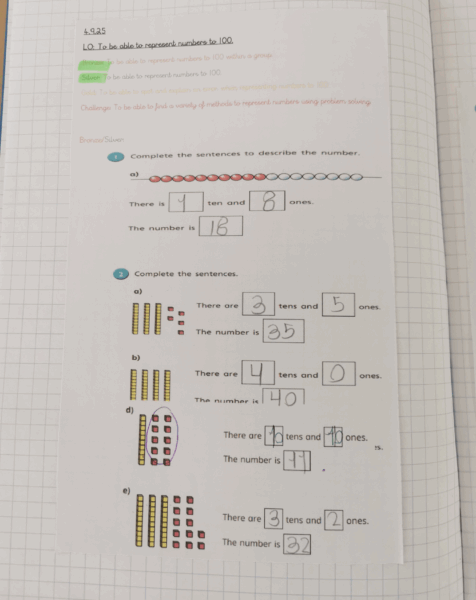 4.9.25
LO: To be able to represent numbers to 100.
Bronze: To be able to represent numbers to 100 within a group.
Silver: To be able to represent numbers to 100.
Challenge: To be able to find a variety of methods to represent numbers using problem solving.
Bronze/Silver
1 Complete the sentences to describe the number.
a)
There is 1 ten and 8 ones.
The number is 18
2 Complete the sentences.
a)
There are 3 tens and 5 ones.
The number is 35
b)
There are 4 tens and 0 ones.
The number is 40
d)
There are tens and ones.
is.
The number is 11.
e)
There are 3 tens and 2 ones.
The number is 32